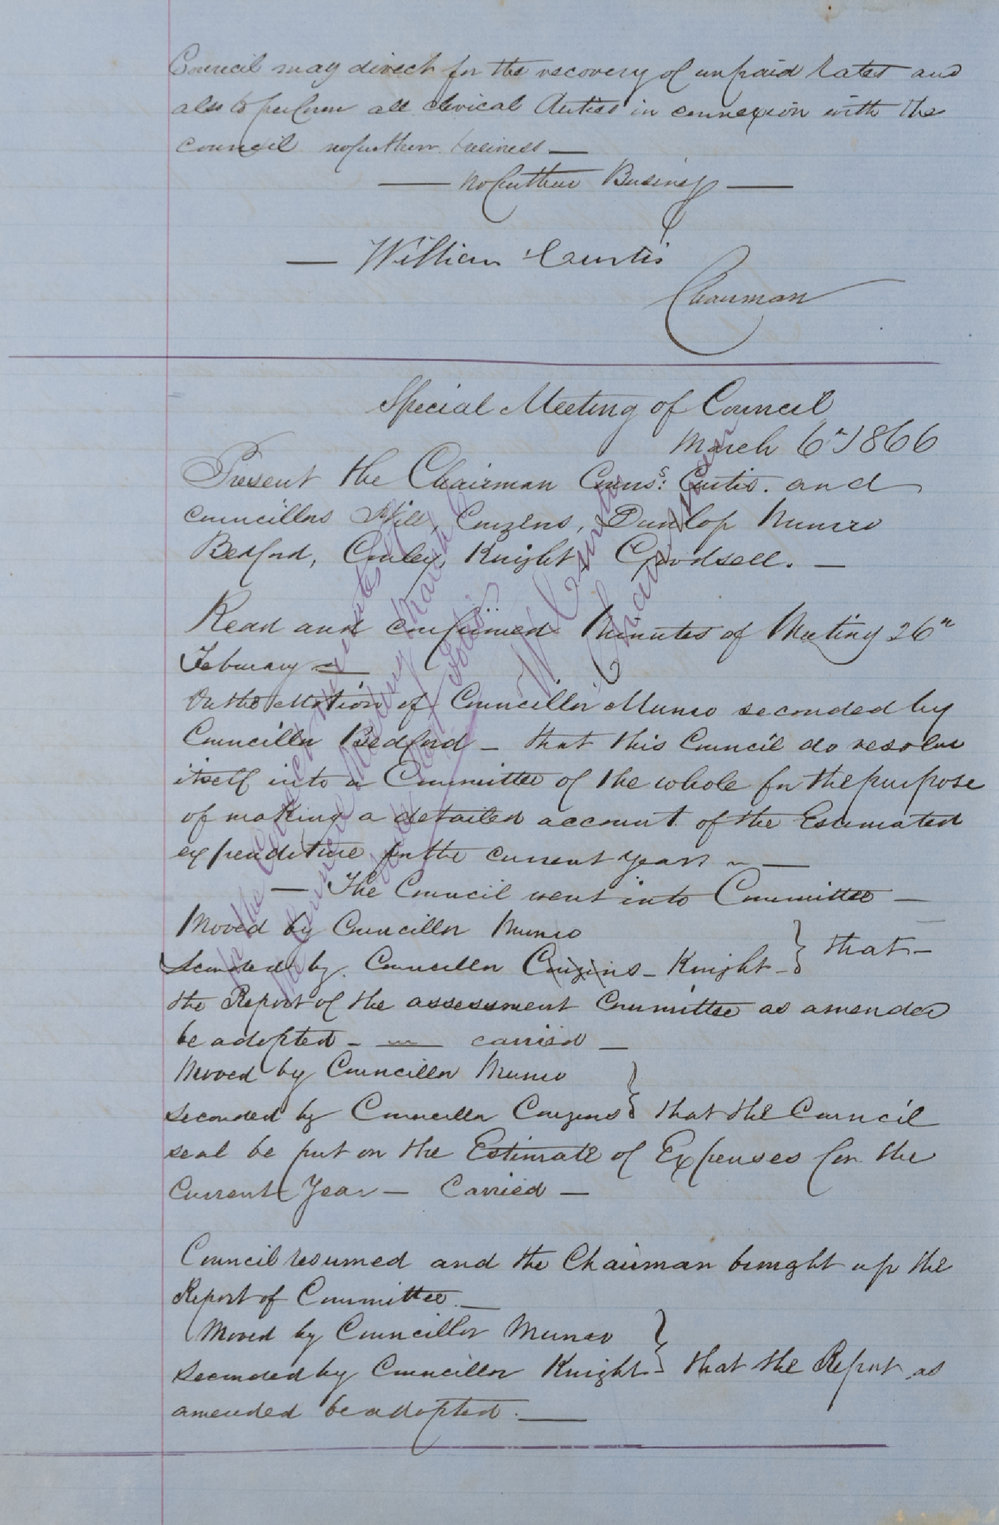 Council may direct for the recovery of unpaid rates and
also to perform all clerical duties in connexion with the
council no further business —
— no further Business —
— William Curtis
Chairman
Special Meeting of Council
March 6th 1866
Present the Chairman Couns: Curtis. and
Councillors Hill, Couzens, Dunlop Munro
Bedford, Conley, Knight, Goodsell. —
Read and confirmed Minutes of Meeting 26th
Feburary —
On the Motion of Councillor Munro seconded by
Councillor Bedford — that this Council do resolve
itself into a Committee of the whole for the purpose
of making a detailed account of the Estimated
expenditure for the current year —
— The Council went into Committee —
Moved by Councillor Munro
Seconded by Councillor Couzins - Knight } that —
the Report of the assessment Committee as amended
be adopted — carried —
Moved by Councillor Munro
seconded by Councillor Couzens } that the Council
seal be put on the Estimate of Expenses for the
Current Year — Carried —
Council resumed and the Chairman brought up the
Report of Committee —
Moved by Councillor Munro
seconded by Councillor Knight } that the Report as
amended be adopted. —
W Curtis
Chairman